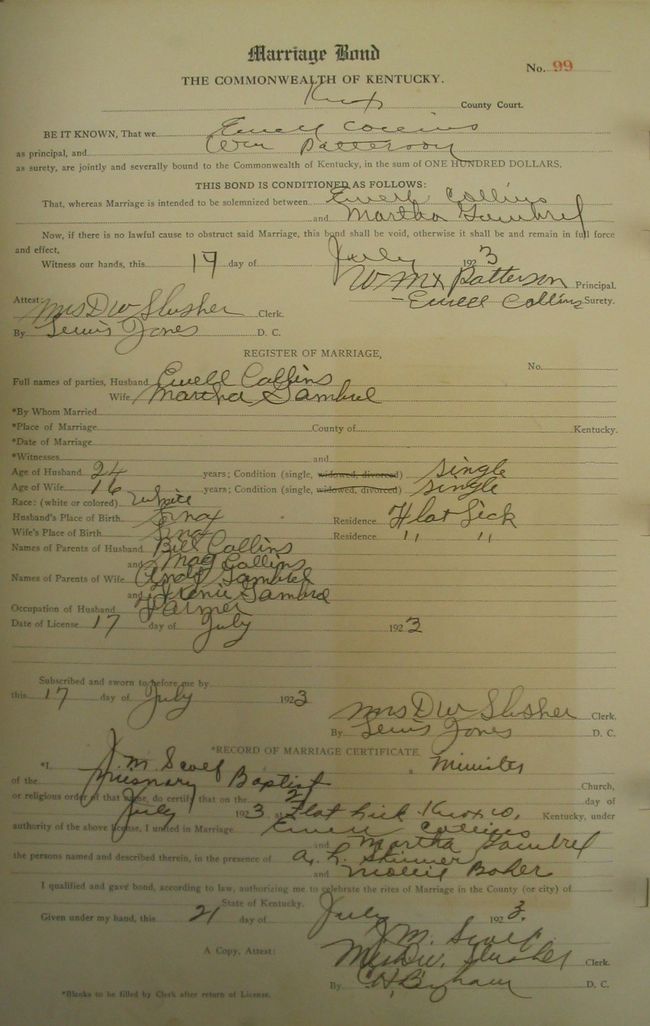 Marriage Bond
No. 99
THE COMMONWEALTH OF KENTUCKY.
Knox County Court.
BE IT KNOWN, That we Ewell Collins
as principal, and Wm Patterson
as surety, are jointly and severally bound to the Commonwealth of Kentucky, in the sum of ONE HUNDRED DOLLARS.
THIS BOND IS CONDITIONED AS FOLLOWS:
That, whereas Marriage is intended to be solemnized between Ewell Collins
and Martha Gambrel
Now, if there is no lawful cause to obstruct said Marriage, this bond shall be void, otherwise it shall be and remain in full force
and effect.
Witness our hands, this 17 day of July 1923
W M X Patterson Principal.
Attest: Mrs D W Slusher Clerk. Ewell Collins Surety.
By Lewis Jones D. C.
REGISTER OF MARRIAGE,
No.
Full names of parties, Husband Ewell Collins
Wife Martha Gambrel
*By Whom Married
*Place of Marriage County of Kentucky.
*Date of Marriage
*Witnesses and
Age of Husband 24 years; Condition (single, widowed, divorced) single
Age of Wife 16 years; Condition (single, widowed, divorced) single
Race: (white or colored) White
Husband's Place of Birth Knox Residence Flat Lick
Wife's Place of Birth Knox Residence " "
Names of Parents of Husband Bill Collins
and Mag Collins
Names of Parents of Wife Gambrel
and Gambrel
Occupation of Husband Farmer
Date of License 17 day of July 1923
Subscribed and sworn to before me by
this 17 day of July 1923
Mrs D W Slusher Clerk.
By Lewis Jones D. C.
*RECORD OF MARRIAGE CERTIFICATE.
*I, J. M. a Minister
of the Baptist Church,
or religious order of that name, do certify that on the day of
July 1923, at Flat Lick Knox Co, Kentucky, under
authority of the above license, I united in Marriage Ewell Collins
and Martha Gambrel
the persons named and described therein, in the presence of A. L. Skinner
and Mollie Baker
I qualified and gave bond, according to law, authorizing me to celebrate the rites of Marriage in the County (or city) of
State of Kentucky.
Given under my hand, this 21 day of July 1923.
J. M.
A Copy, Attest: Mrs D W. Slusher Clerk.
By D. C.
*Blanks to be filled by Clerk after return of License.